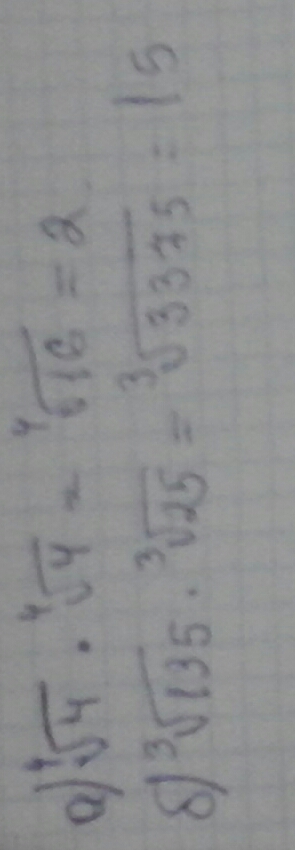 а) ⁴√4 · ⁴√4 = ⁴√16 = 2
б) ³√135 · ³√25 = ³√3375 = 15